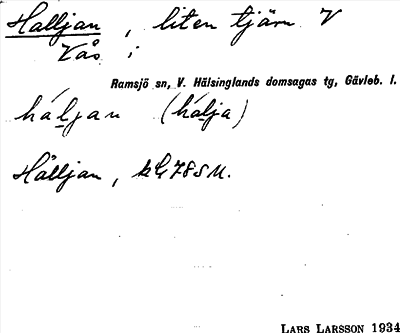 Halljan, liten tjärn V
Vås i
Ramsjö sn, V. Hälsinglands domsagas tg, Gävleb. l.
háljan (hálja)
Hålljan, k 78 S M.
LARS LARSSON 1934